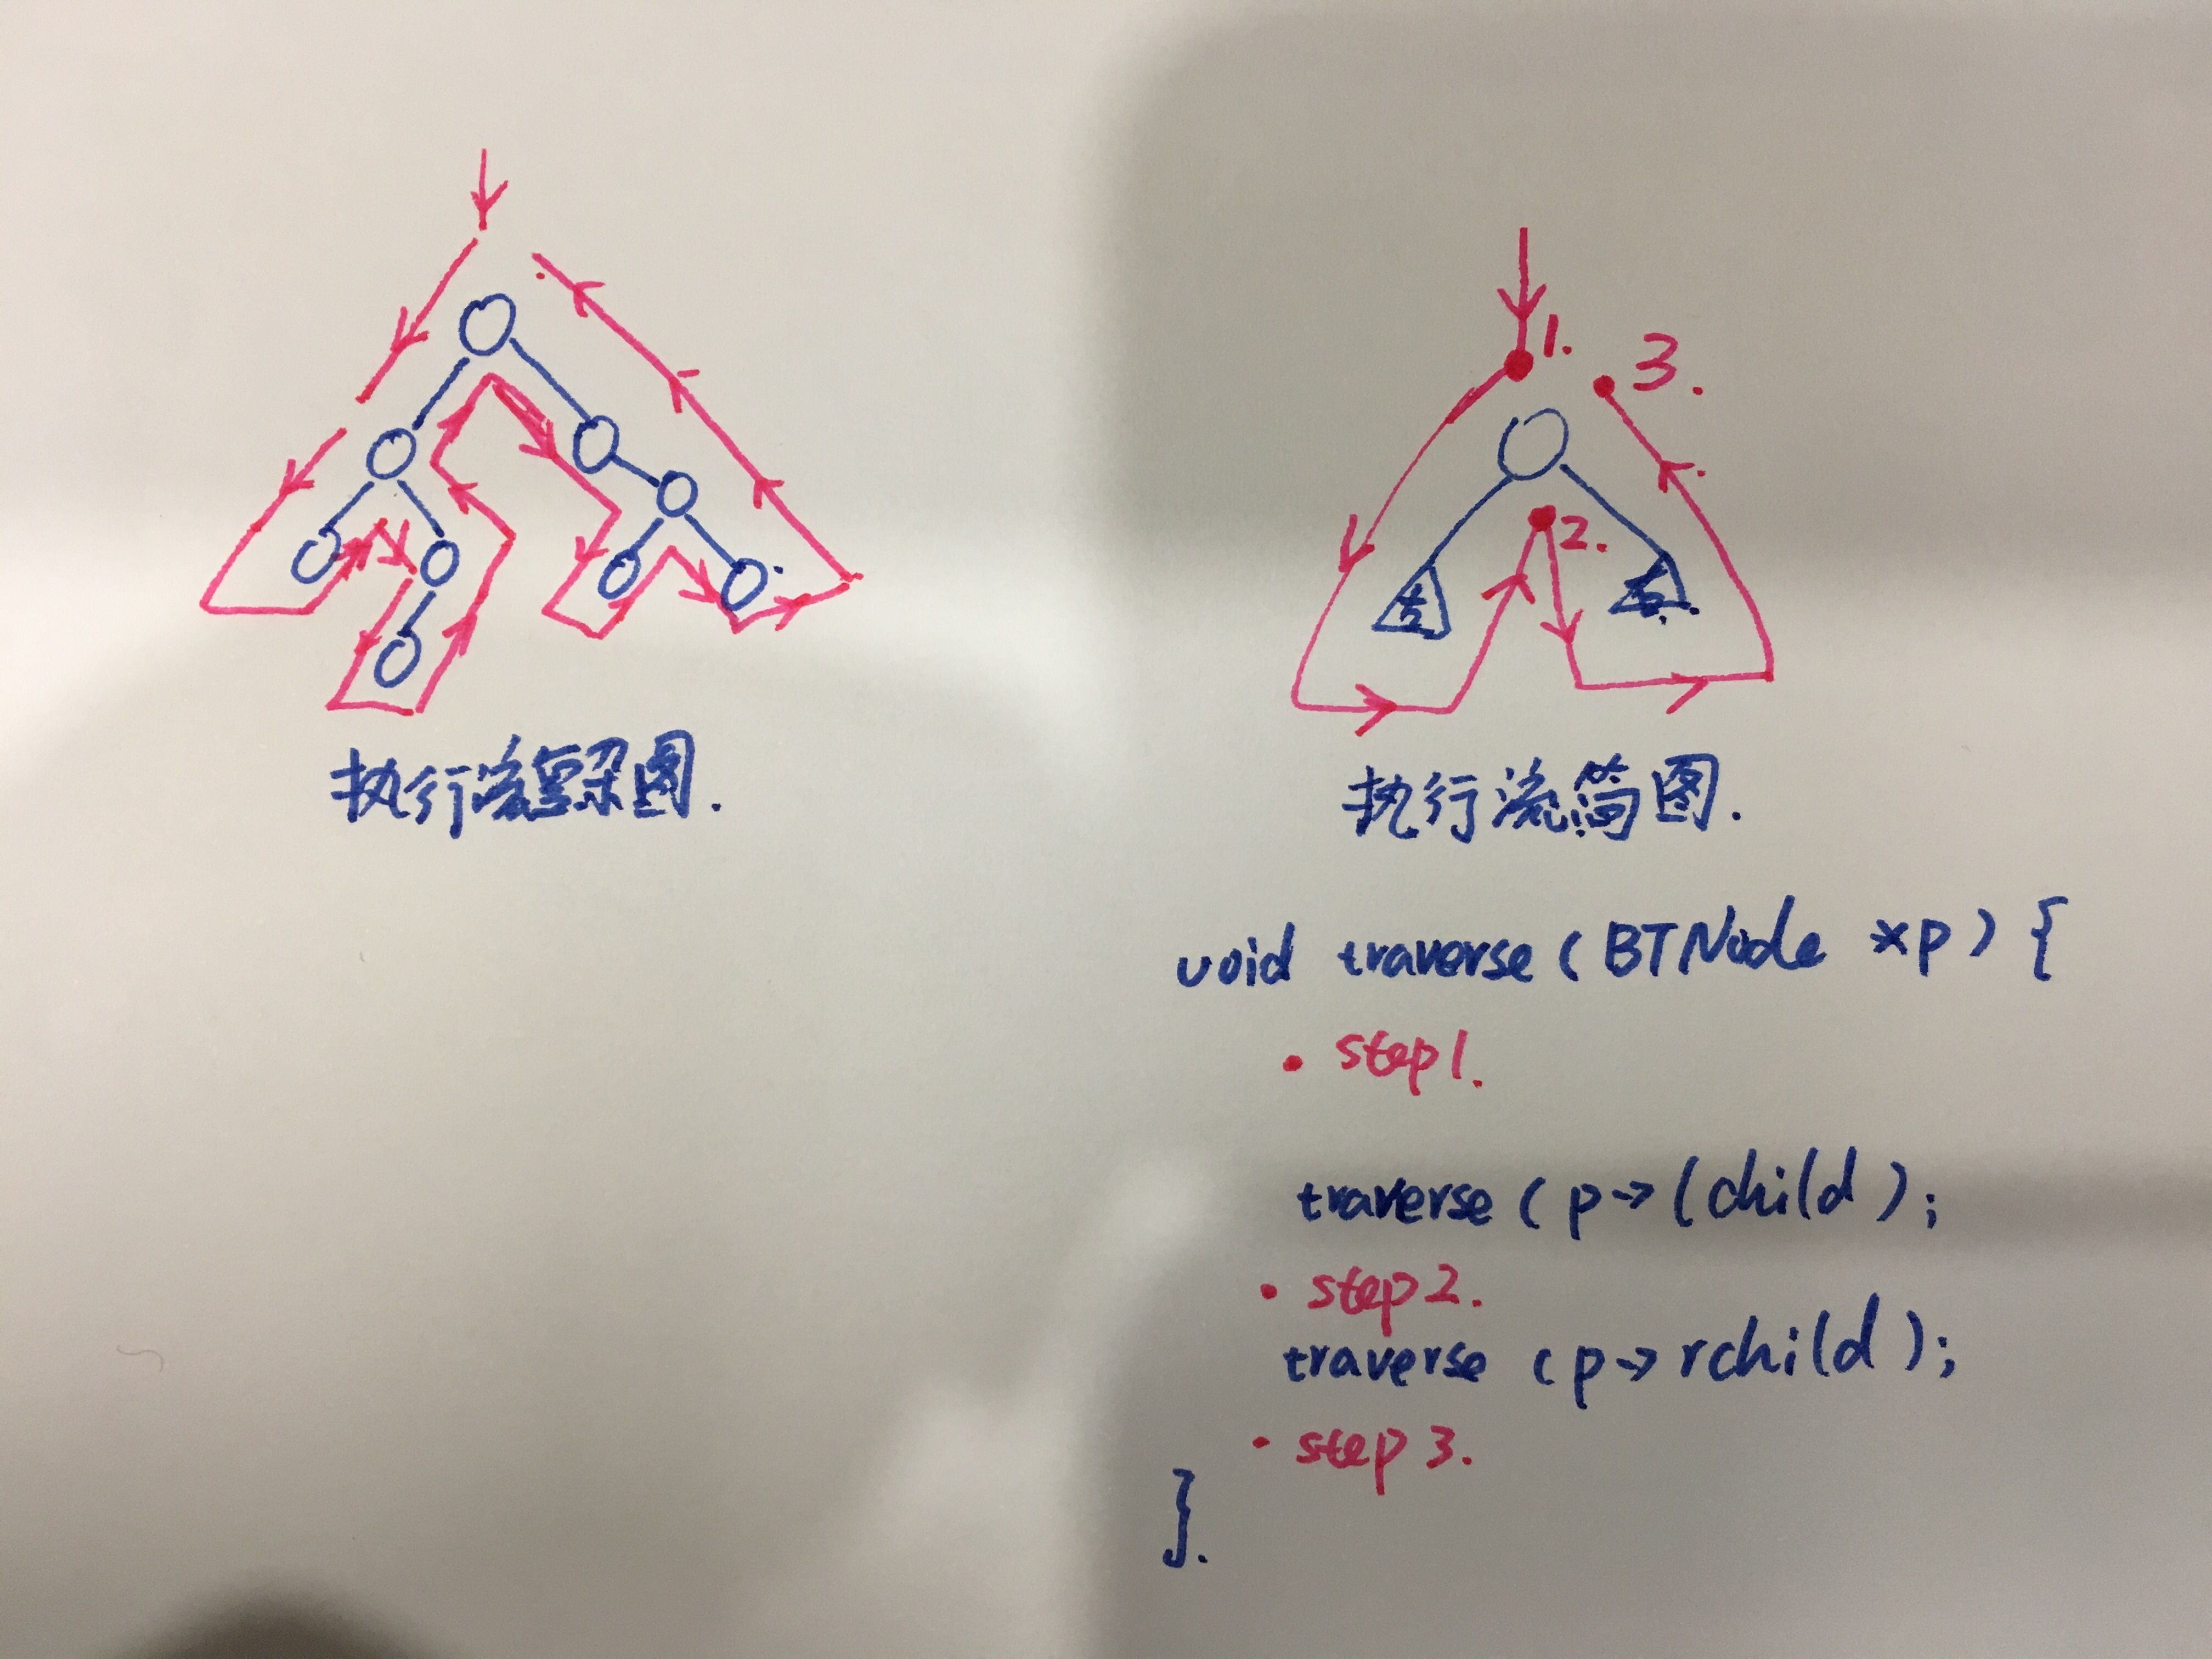 1.
3.
2.
左
右
执行流复杂图.
执行流简图.
void traverse (BTNode *p) {
• step1.
traverse (p->lchild);
• step2.
traverse (p->rchild);
• step3.
}.